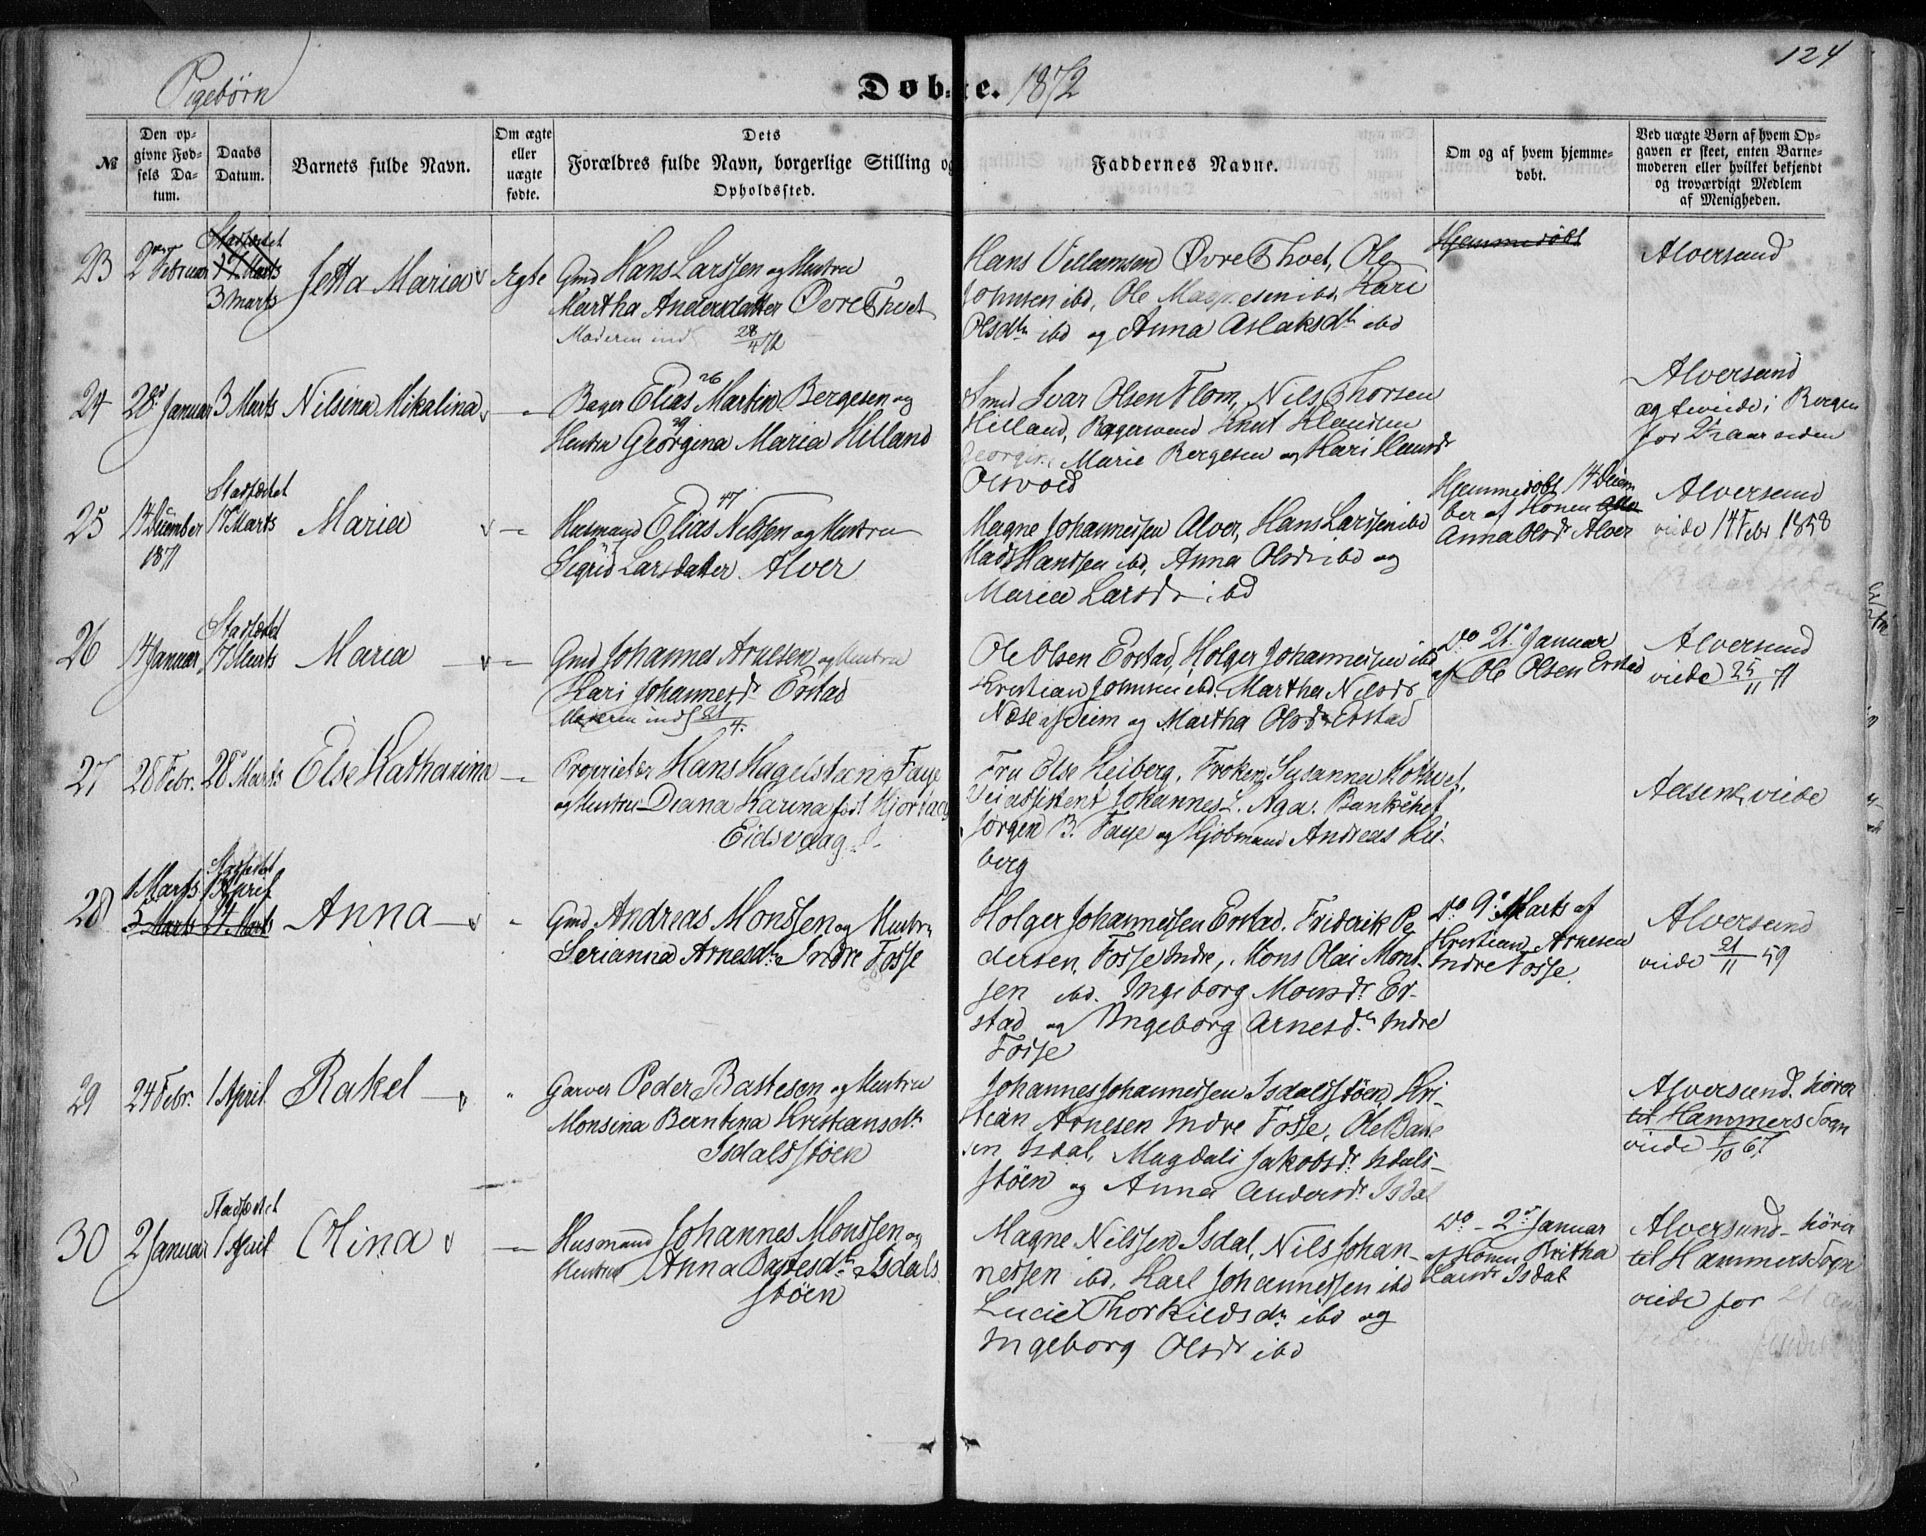 124
Pigebørn
Døbte. 1872
№
Den op-
givne Fød-
sels Da-
tum.
Daabs
Datum.
Barnets fulde Navn.
Om ægte
eller
uægte
fødte.
Dets
Forældres fulde Navn, borgerlige Stilling og
Opholdssted.
Faddernes Navne.
Om og af hvem hjemme-
døbt.
Ved uægte Børn af hvem Op-
gaven er skeet, enten Barne-
moderen eller hvilket bekjendt
og troværdigt Medlem
af Menigheden.
23
2den Februar
Stadfæstet
17 Marts
3 Marts
Jetta Maria
Ægte
Gmd Hans Larssen og Hustru
Martha Andersdatter Øvre Thvet
Moderen ind 28/4 72
Hans Villumsen Øvre Thvet, Ole
Johnsen ibd, Ole Magnesen ibd, Kari
Olsdtr ibd og Anna Aslaksdtr ibd
Hjemmedøbt
Alversund
24
28 Januar
3 Marts
Nilsina Mikalina
Bager Elias Martin Bergesen og
26
Hustru Georgina Maria Hilland
29
Smed Ivar Olsen Flom, Nils Thorsen
Hilland, Bagersvend Knut Klausen
Georgine Marie Bergesen og Kari Hansdr
Olsvold
Alversund
og viede i Bergen
for 2½ aar siden
25
14 December
1871
Stadfæstet
17 Marts
Maria
Husmand Elias Nilssen og Hustru
47
Sigrid Larsdatter Alver
Magne Johannessen Alver, Hans Larssen ibd
Mads Hanssen ibd, Anna Olsdr ibd og
Maria Larsdr ibd
Hjemmedøbt 14 Decem
ber af Konen
Anna Olsdr Alver
Alversund
viede 14 Febr 1858
26
14 Januar
Stadfæstet
17 Marts
Maria
Gmd Johannes Arnesen og Hustru
Kari Johannesdr Erstad
Moderen inds 21/4.
Ole Olsen Erstad, Holger Johannessen ibd
Kristian Johnsen ibd. Martha Nilsdr
Næse af Seim og Martha Olsdr Erstad
Do 21. Januar
af Ole Olsen Erstad
Alversund
viede 25/11 71
27
28 Febr.
28 Marts
Else Katharina
Proprietær Hans Hagelsteen Faye
og Hustru Diana Karina fød Hjortaas
Eidsvaag
Fru Else Heiberg. Frøken Susanna
Veiassistent Johannes L. Aga. Bankchef
Jørgen B. Faye og Kjøbmand Andreas Hei-
berg
Aasene, viede
28
1 Marts
5 Marts
Stadfæstet
1 April
24 Marts
Anna
Gmd. Andreas Monssen og Hustru
Serianna Arnesdr Indre Fosse
Holger Johannessen Erstad. Friderik Pe
dersen, Fosse Indre, Mons Olai Mons-
sen ibd. Ingeborg Monsdr Er-
stad og Ingeborg Arnesdtr Indre
Fosse
Do 9. Marts af
Kristian Arnesen
Indre Fosse.
Alversund
viede 21/11 59
29
24 Febr.
1 April
Rakel
Garver Peder Bastesen og Hustru
Monsina Berntina Kristiansdtr
Isdalsstøen
Johannes Johannessen Isdalsstøen, Kri-
stian Arnesen Indre Fosse, Ole Baste
sen Isdal, Magdali Jakobsdr Isdals-
støen og Anna Andersdr Isdal
Alversund. hører
til Hammers Sogn
viede /10 67
30
2 Januar
Stadfæstet
1 April
Olina
Husmand Johannes Monssen og
Hustru Anna Bastesdtr Isdals
støen
Magne Nilssen Isdal, Nils Johan-
nessen ibd, Karl Johannessen ibd
Lucie Thorkildsdr ibd og
Ingeborg Olsdr ibd
Do - 2. Januar
af Konen Britha
Larsdr Isdal
Alversund - hører
til Hammers Sogn
viede for 21 aar
siden